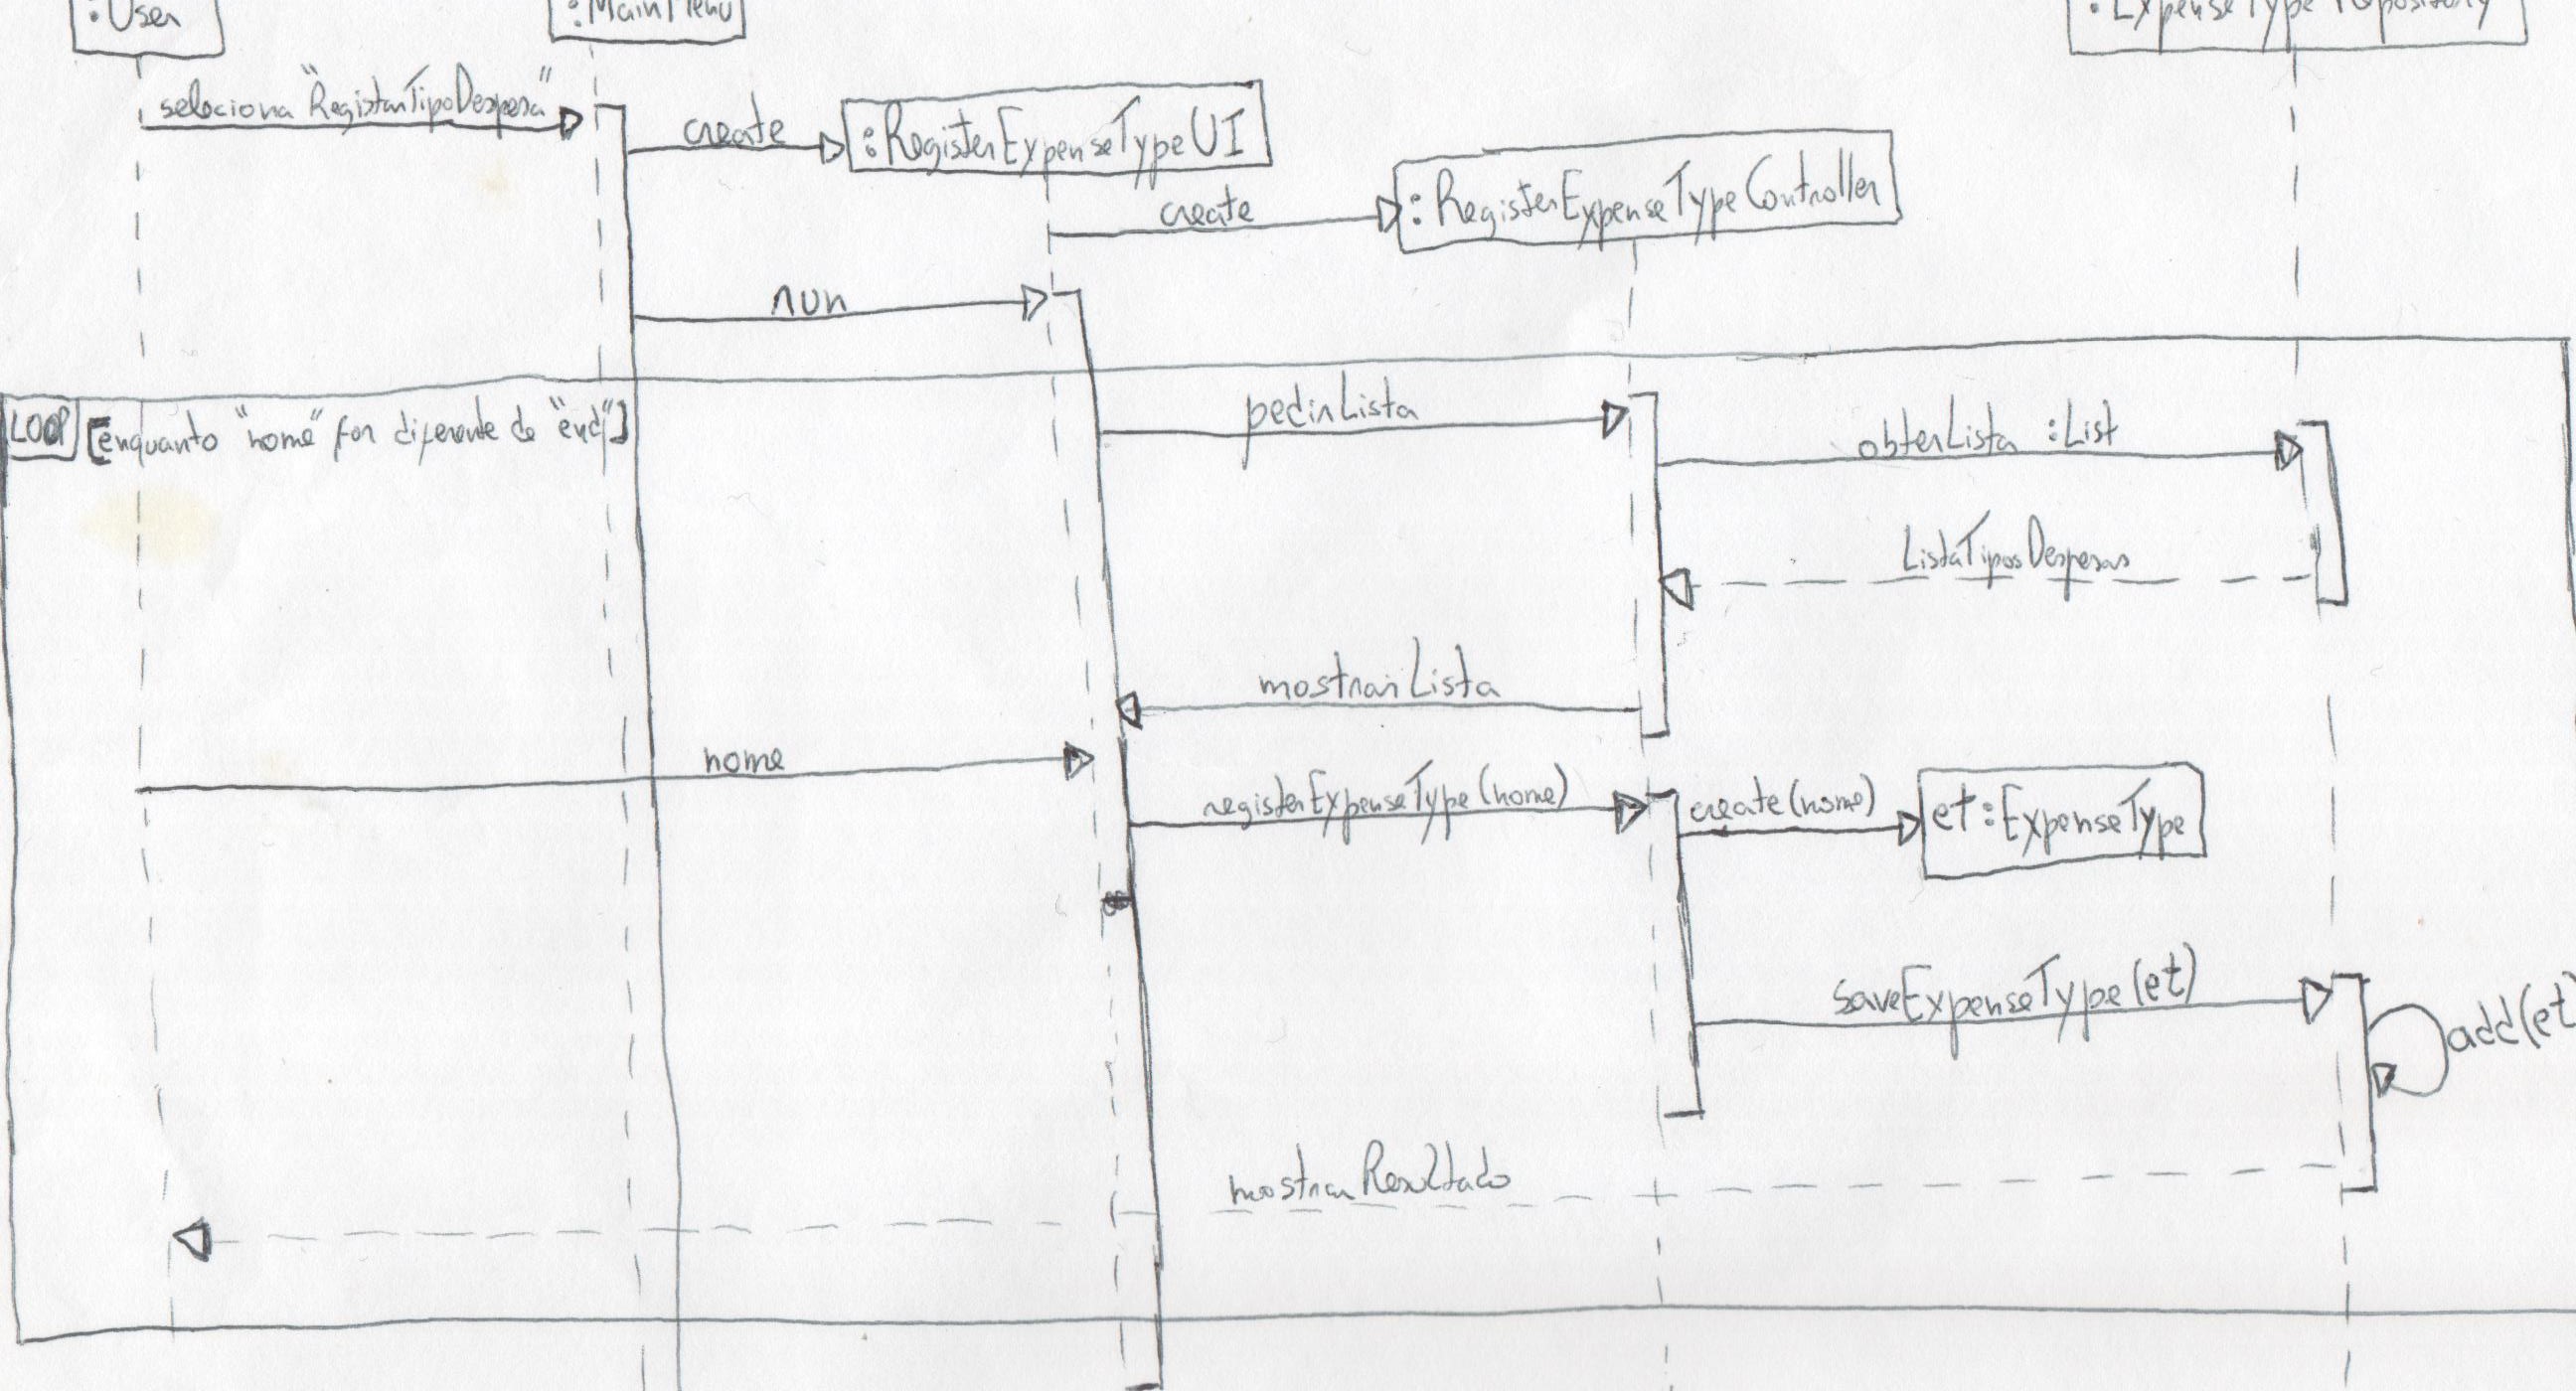 :User
:MainMenu
:ExpenseTypeRepository
seleciona "RegistarTipoDespesa"
create
:RegisterExpenseTypeUI
create
:RegisterExpenseTypeController
run
LOOP [enquanto "nome" for diferente de "end"]
pedirLista
obterLista :List
ListaTiposDespesas
mostrarLista
nome
registerExpenseType(nome)
create(nome)
et:ExpenseType
saveExpenseType(et)
add(et
mostrarResultado